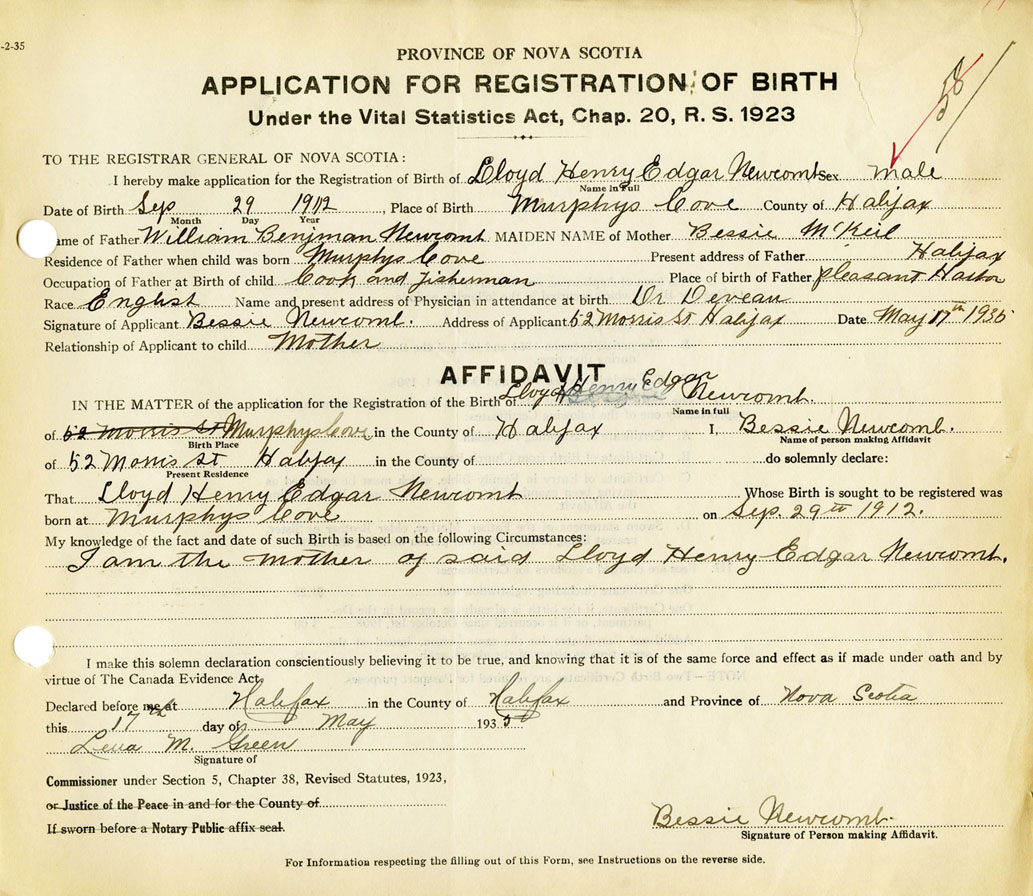 -2-35
58
PROVINCE OF NOVA SCOTIA
APPLICATION FOR REGISTRATION OF BIRTH
Under the Vital Statistics Act, Chap. 20, R. S. 1923
TO THE REGISTRAR GENERAL OF NOVA SCOTIA:
I hereby make application for the Registration of Birth of Lloyd Henry Edgar Newcomb Sex Male
Name in Full
Date of Birth Sep 29 1912, Place of Birth Murphys Cove County of Halifax
Month Day Year
ame of Father William Benjman Newcomb MAIDEN NAME of Mother Bessie McKeil
Residence of Father when child was born Murphys Cove Present address of Father Halifax
Occupation of Father at Birth of child Cook and Fisherman Place of birth of Father Pleasant Harbor
Race English Name and present address of Physician in attendance at birth Dr Deveau
Signature of Applicant Bessie Newcomb. Address of Applicant 52 Morris St Halifax Date May 17th 1935
Relationship of Applicant to child Mother
AFFIDAVIT
IN THE MATTER of the application for the Registration of the Birth of Lloyd Henry Edgar Newcomb.
Name in full
of 52 Morris St Murphys Cove in the County of Halifax I, Bessie Newcomb.
Birth Place Name of person making Affidavit
of 52 Morris St Halifax in the County of do solemnly declare:
Present Residence
That Lloyd Henry Edgar Newcomb Whose Birth is sought to be registered was
born at Murphys Cove on Sep. 29th 1912.
My knowledge of the fact and date of such Birth is based on the following Circumstances:
I am the mother of said Lloyd Henry Edgar Newcomb.
I make this solemn declaration conscientiously believing it to be true, and knowing that it is of the same force and effect as if made under oath and by
virtue of The Canada Evidence Act.
Declared before me at Halifax in the County of Halifax and Province of Nova Scotia
this 17th day of May 1935
Lena M. Green
Signature of
Commissioner under Section 5, Chapter 38, Revised Statutes, 1923,
or Justice of the Peace in and for the County of
If sworn before a Notary Public affix seal.
Bessie Newcomb.
Signature of Person making Affidavit.
For Information respecting the filling out of this Form, see Instructions on the reverse side.